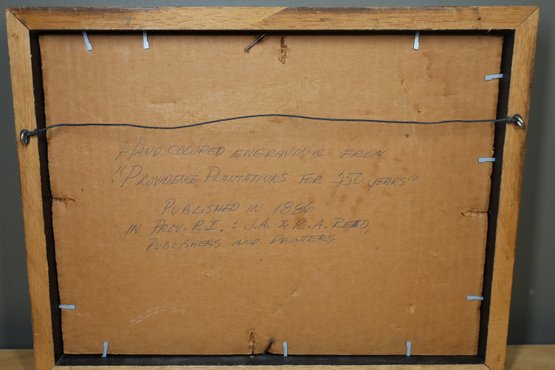 HAND COLORED ENGRAVING FROM
"PROVIDENCE PLANTATIONS FOR 250 YEARS"
PUBLISHED IN 1886
IN PROV. R.I., : J.A. & R.A. REED,
PUBLISHERS AND PRINTERS